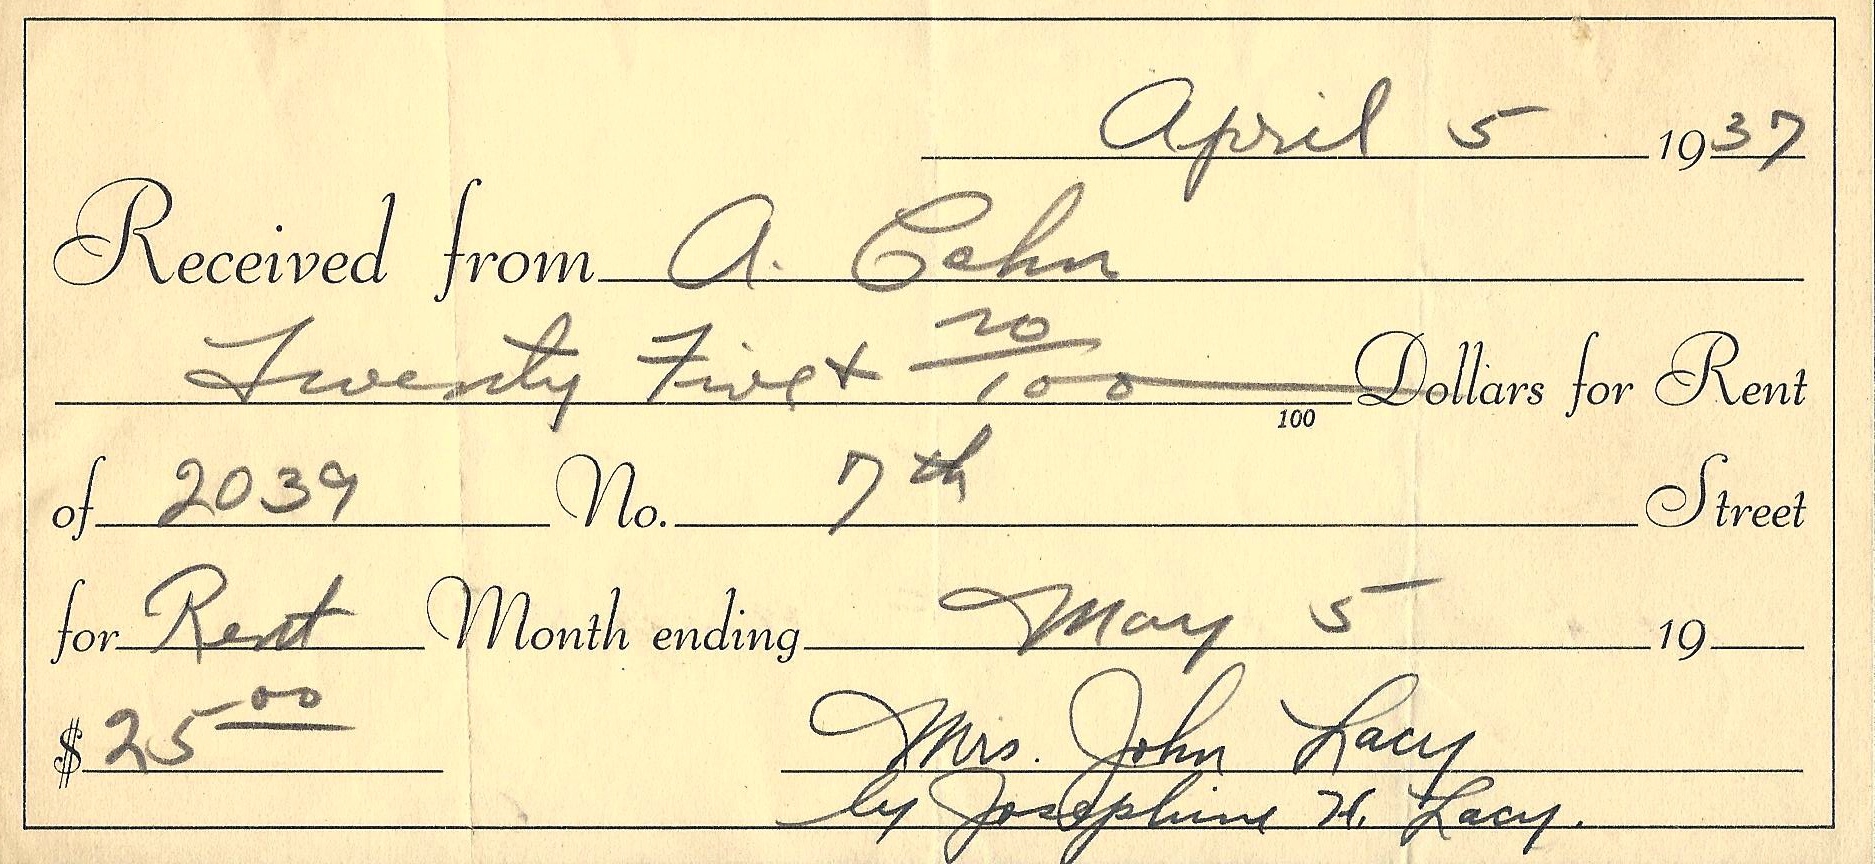 April 5 1937
Received from A. Cehn
Twenty Five & no/100 Dollars for Rent
100
of 2039 No. 7th Street
for Rent Month ending May 5 19
$25 00 Mrs. John Lacy
by Josephine H. Lacy.